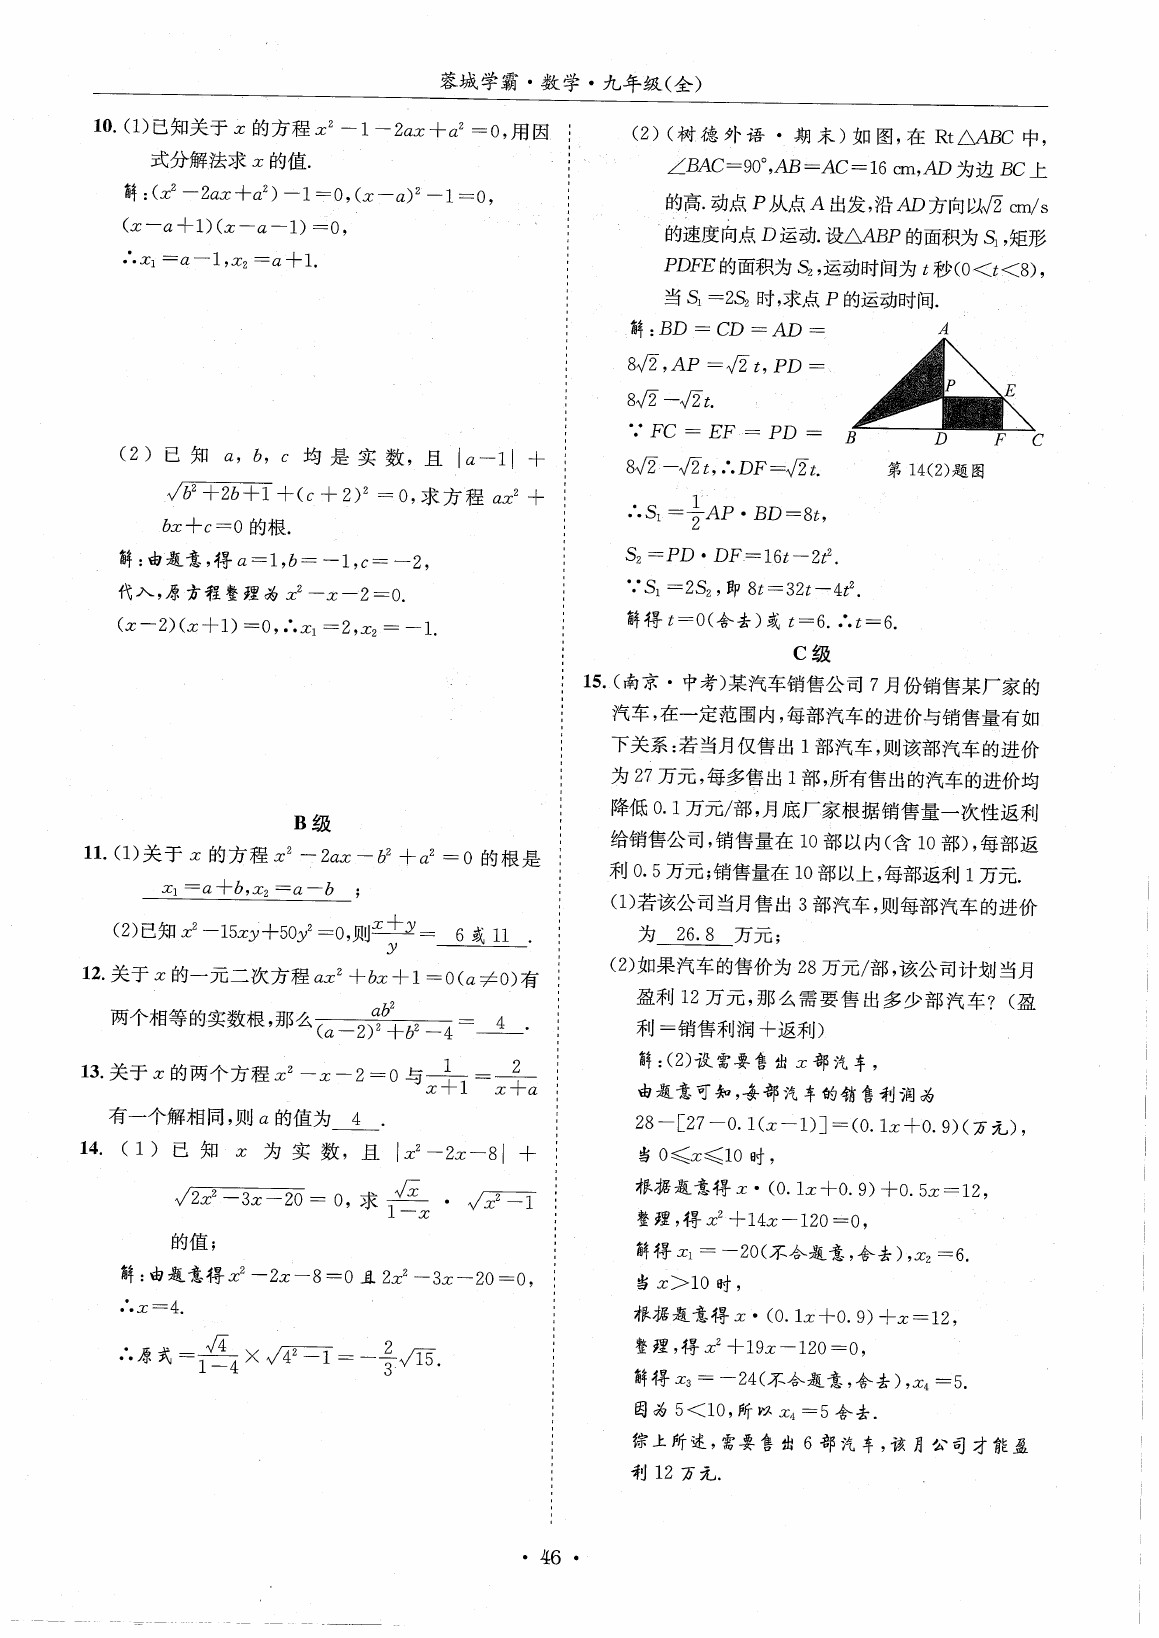 蓉城学霸·数学·九年级(全)
10. (1)已知关于 x 的方程 x²－1－2ax＋a²＝0,用因
式分解法求 x 的值.
解:(x²－2ax＋a²)－1＝0,(x－a)²－1＝0,
(x－a＋1)(x－a－1)＝0,
∴x₁＝a－1,x₂＝a＋1.
(2)已知 a, b, c 均是实数, 且 |a－1|＋
√(b²＋2b＋1)＋(c＋2)²＝0,求方程 ax²＋
bx＋c＝0 的根.
解:由题意,得 a＝1,b＝－1,c＝－2,
代入,原方程整理为 x²－x－2＝0.
(x－2)(x＋1)＝0,∴x₁＝2,x₂＝－1.
B级
11. (1)关于 x 的方程 x²－2ax－b²＋a²＝0 的根是
x₁＝a＋b,x₂＝a－b ;
(2)已知 x²－15xy＋50y²＝0,则(x＋y)/y＝ 6或11 .
12. 关于 x 的一元二次方程 ax²＋bx＋1＝0(a≠0)有
两个相等的实数根,那么 ab²/((a－2)²＋b²－4)＝ 4 .
13. 关于 x 的两个方程 x²－x－2＝0 与 1/(x＋1)＝2/(x＋a)
有一个解相同,则 a 的值为 4 .
14. (1)已知 x 为实数, 且 |x²－2x－8|＋
√(2x²－3x－20)＝0, 求 √x/(1－x)·√(x²－1)
的值;
解:由题意得 x²－2x－8＝0 且 2x²－3x－20＝0,
∴x＝4.
∴原式＝√4/(1－4)×√(4²－1)＝－2/3√15.
(2)(树德外语·期末)如图,在 Rt△ABC 中,
∠BAC＝90°,AB＝AC＝16 cm,AD 为边 BC 上
的高.动点 P 从点 A 出发,沿 AD 方向以√2 cm/s
的速度向点 D 运动.设△ABP 的面积为 S₁,矩形
PDFE 的面积为 S₂,运动时间为 t 秒(0＜t＜8),
当 S₁＝2S₂ 时,求点 P 的运动时间.
解:BD＝CD＝AD＝
8√2,AP＝√2t,PD＝
8√2－√2t.
∵FC＝EF＝PD＝
8√2－√2t,∴DF＝√2t.
A
P
E
B
D
F
C
第 14(2)题图
∴S₁＝1/2AP·BD＝8t,
S₂＝PD·DF＝16t－2t².
∵S₁＝2S₂,即 8t＝32t－4t².
解得 t＝0(舍去)或 t＝6.∴t＝6.
C级
15. (南京·中考)某汽车销售公司 7 月份销售某厂家的
汽车,在一定范围内,每部汽车的进价与销售量有如
下关系:若当月仅售出 1 部汽车,则该部汽车的进价
为 27 万元,每多售出 1 部,所有售出的汽车的进价均
降低 0.1 万元/部,月底厂家根据销售量一次性返利
给销售公司,销售量在 10 部以内(含 10 部),每部返
利 0.5 万元;销售量在 10 部以上,每部返利 1 万元.
(1)若该公司当月售出 3 部汽车,则每部汽车的进价
为 26.8 万元;
(2)如果汽车的售价为 28 万元/部,该公司计划当月
盈利 12 万元,那么需要售出多少部汽车? (盈
利＝销售利润＋返利)
解:(2)设需要售出 x 部汽车,
由题意可知,每部汽车的销售利润为
28－[27－0.1(x－1)]＝(0.1x＋0.9)(万元),
当 0≤x≤10 时,
根据题意得 x·(0.1x＋0.9)＋0.5x＝12,
整理,得 x²＋14x－120＝0,
解得 x₁＝－20(不合题意,舍去),x₂＝6.
当 x＞10 时,
根据题意得 x·(0.1x＋0.9)＋x＝12,
整理,得 x²＋19x－120＝0,
解得 x₃＝－24(不合题意,舍去),x₄＝5.
因为 5＜10,所以 x₄＝5 舍去.
综上所述,需要售出 6 部汽车,该月公司才能盈
利 12 万元.
·46·